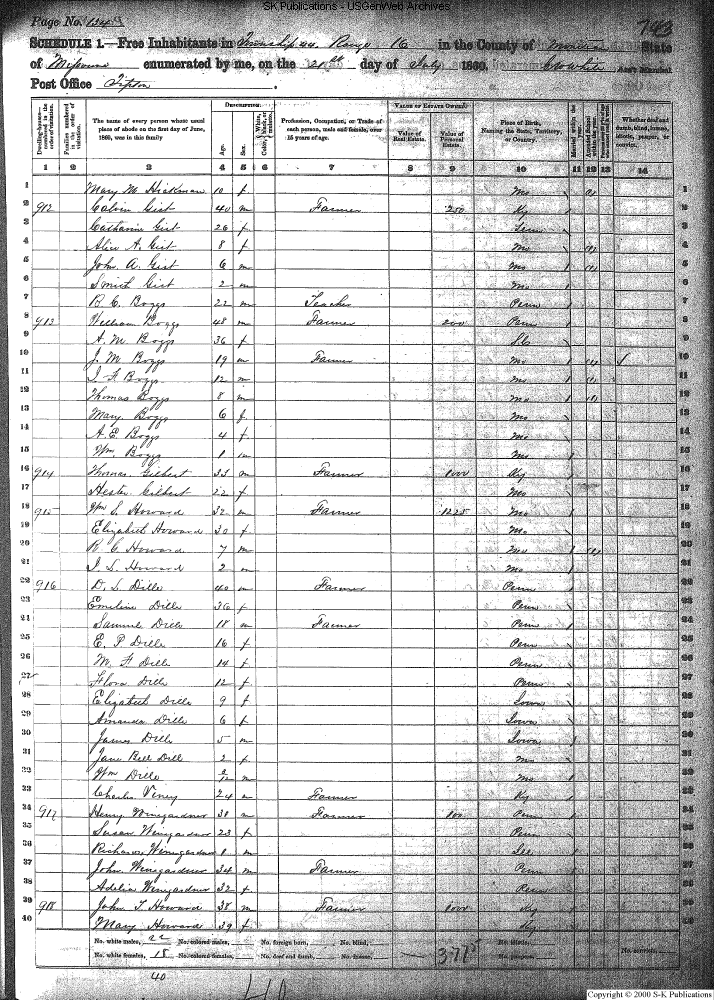 SK Publications - USGenWeb Archives
Page No. 134
793
SCHEDULE 1.—Free Inhabitants in Township 44 Range 16 in the County of State
of Missouri enumerated by me, on the 20th day of July 1860. Ass't Marshal
Post Office Tipton.
Dwelling-houses—numbered in the order of visitation.
Families numbered in the order of visitation.
The name of every person whose usual place of abode on the first day of June, 1860, was in this family
DESCRIPTION.
Age.
Sex.
Color, White, black, or mulatto.
Profession, Occupation, or Trade of each person, male and female, over 15 years of age.
VALUE OF ESTATE OWNED.
Value of Real Estate.
Value of Personal Estate.
Place of Birth, Naming the State, Territory, or Country.
Married within the year.
Whether deaf and dumb, blind, insane, idiotic, pauper, or convict.
1 2 3 4 5 6 7 8 9 10 11 12 13 14
1 Mary M Hickman 10 f Mo 1
2 912 Calvin Gist 40 m Farmer 250 Ky 2
3 Catharine Gist 26 f Tenn 3
4 Alice A. Gist 8 f Mo 4
5 John A. Gist 6 m Mo 5
6 Smith Gist 2 m Mo 6
7 B. C. Boggs 22 m Teacher Penn 7
8 913 William Boggs 48 m Farmer 200 Penn 8
9 A. M Boggs 36 f 9
10 J. M Boggs 19 m Farmer Mo 10
11 Boggs 12 m Mo 11
12 Thomas Boggs 8 m Mo 12
13 Mary Boggs 6 f Mo 13
14 A. E. Boggs 4 f Mo 14
15 Wm Boggs 1 m Mo 15
16 914 Thomas Gilbert 33 m Farmer 1000 Ky 16
17 Hester Gilbert 22 f Mo 17
18 915 Wm S. Howard 32 m Farmer 1225 Mo 18
19 Elizabeth Howard 30 f Mo 19
20 R. C. Howard 7 m Mo 20
21 Howard 2 m Mo 21
22 916 D. L. Dille 40 m Farmer Penn 22
23 Emeline Dille 36 f Penn 23
24 Samuel Dille 18 m Farmer Penn 24
25 E. P Dille 16 f Penn 25
26 M. F Dille 14 f Penn 26
27 Flora Dille 12 f Penn 27
28 Elizabeth Dille 9 f Iowa 28
29 Amanda Dille 6 f Iowa 29
30 James Dille 5 m Iowa 30
31 Jane Bell Dill 2 f Mo 31
32 Wm Dille m Mo 32
33 Charles Viney 24 m Farmer Ky 33
34 917 Henry Winegardner 30 m Farmer 100 Penn 34
35 Susan Winegardner 23 f Penn 35
36 Richard Winegardner m 36
37 John Winegardner 34 m Farmer Penn 37
38 Adelia Winegardner 32 f Penn 38
39 918 John T. Howard 38 m Farmer 1000 Ky 39
40 Mary Howard 39 f Ky 40
No. white males, 22 No. colored males, No. foreign born, No. blind, No. idiotic,
No. white females, 18 No. colored females, No. deaf and dumb, No. insane, 3775 No. paupers, No. convicts,
40
40
Copyright © 2000 S-K Publications